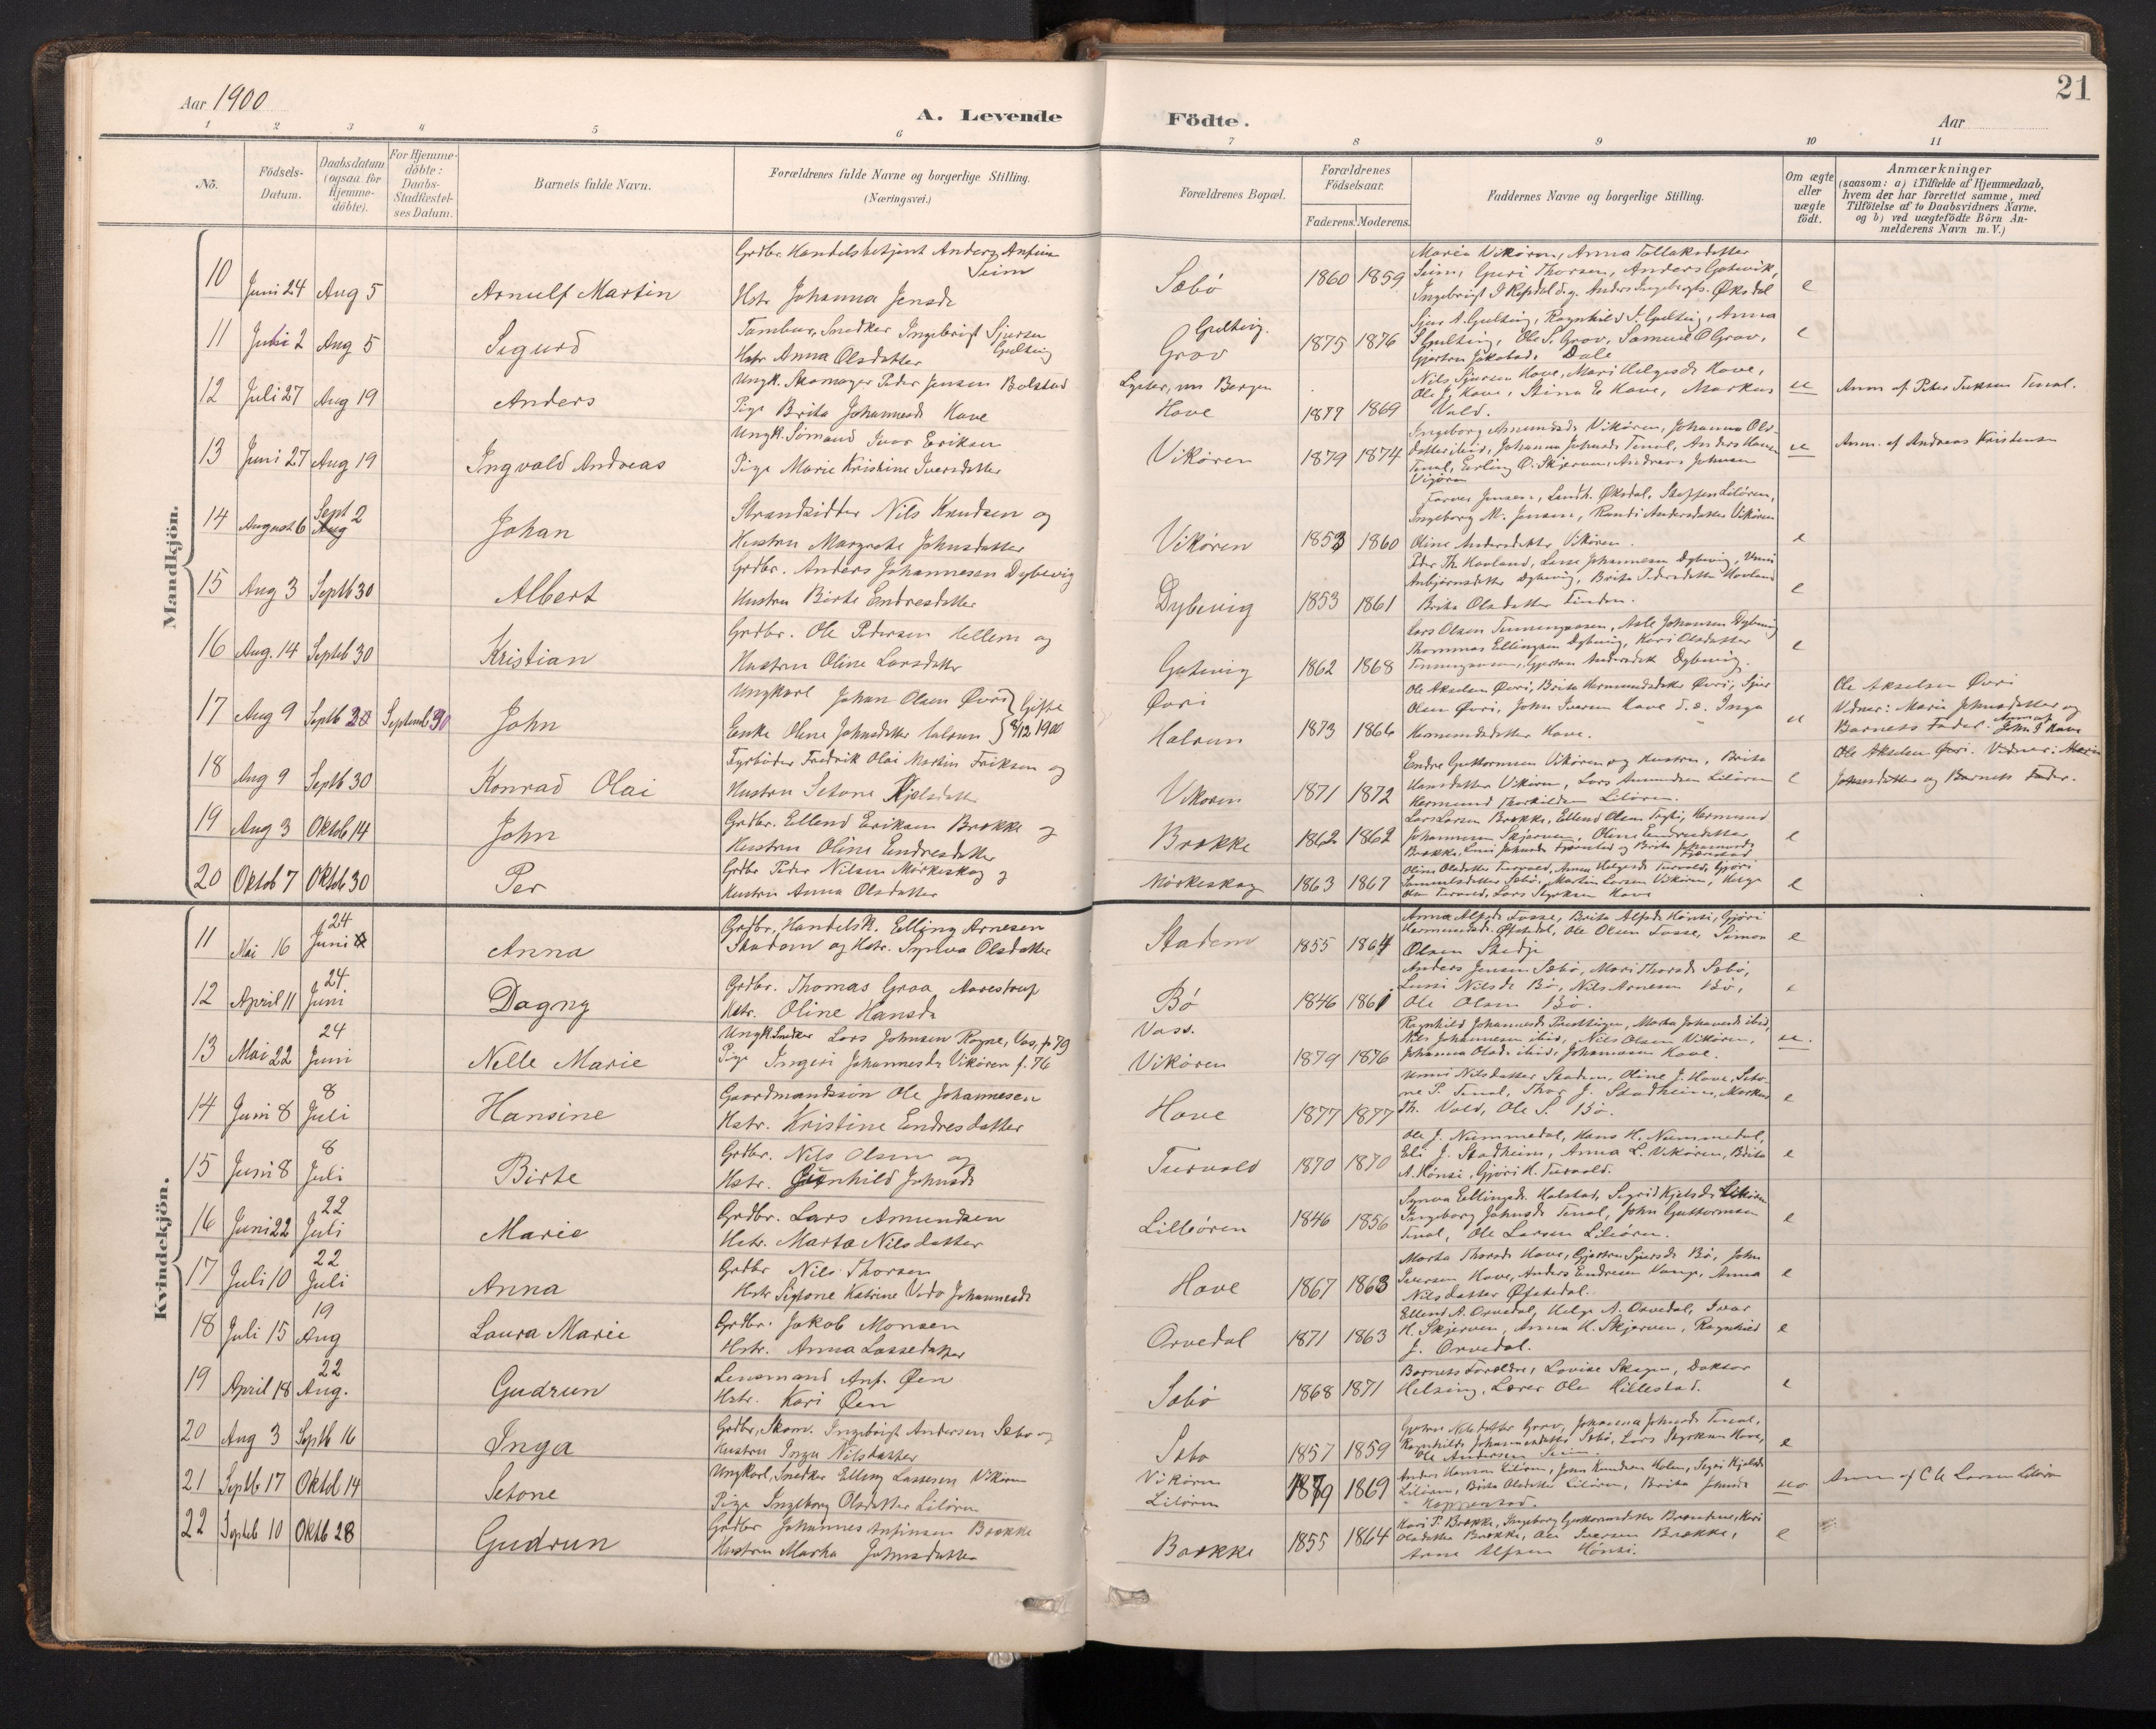 21
Aar 1900
A. Levende Födte.
Aar
1 2 3 4 5 6 7 8 9 10 11
No.
Födsels-
Datum.
Daabsdatum
(ogsaa for
Hjemme-
döbte).
For Hjemme-
döbte:
Daabs-
Stadfæstel-
ses Datum.
Barnets fulde Navn.
Forældrenes fulde Navne og borgerlige Stilling.
(Næringsvei.)
Forældrenes Bopæl.
Forældrenes
Födselsaar.
Faderens. Moderens.
Faddernes Navne og borgerlige Stilling.
Om ægte
eller
uægte
födt.
Anmærkninger
(saasom: a) i Tilfælde af Hjemmedaab,
hvem der har forrettet samme, med
Tilföielse af to Daabsvidners Navne.
og b) ved uægtefödte Börn An-
melderens Navn m. V.)
Mandkjön.
10 Juni 24 Aug 5 Arnulf Martin
Grdbr. Handelsbetjent Anders Anfin
Seim
Hstr Johanna Jensdr
Sæbö 1860 1859
Maria Vikören, Anna Tollaksdatter
Seim, Guri Thorsen, Anders Gjetevik,
e
11 Juli 2 Aug 5 Sigurd
Tambur, Snedker Ingebrigt Sjursen
Gulteig
Hstr Anna Olsdatter
Gulteig.
Grov 1875 1876
Sjur A. Gulteig, Ragnhild S. Gulteig, Anna
S Gulteig, Ole S. Grov, Samuel O Grov,
Dale
e
12 Juli 27 Aug 19 Anders
Ungk. Skomager Peder Jensen Bolstad
Pige Brita Johannesdr Hove
Bergen
Hove 1877 1869
Nils Sjursen Hove, Mari Helgesdr Hove,
Ole J. Hove, Stina E Hove, Markus
Vold.
u
Anm. af Peter Tinal.
13 Juni 27 Aug 19 Ingvald Andreas
Ungk. Sömand Ivar Eriksen
Pige Marie Kristine Iversdatter
Vikören 1879 1874
Ingeborg Amundsdr Vikören, Johanna Ols-
datter ibid, Johanna Johnsdr Tinal, Anders Hansen
Tinal, Erling O. Skjerven, Andreas Johnsen
Vigören
u
Anm. af Andreas Kristensen
14 August 6 Sept 2 Aug Johan
Strandsidder Nils Knudsen og
Hustru Margrete Johnsdatter
Vikören 1853 1860
Jensen, Landh. Öksdal, Steffen Lilören,
Ingeborg M. Jensen, Randi Andersdatter Vikören
Oline Andersdatter Vikören.
e
15 Aug 3 Septb 30 Albert
Grdbr. Anders Johannesen Dybevig
Hustru Birte Endresdatter
Dybevig 1853 1861
Peder Th. Hovland, Lasse Johannesen Dybevig, Unni
Anbjørnsdatter Dybevig, Brita Pedersdatter Hovland
Brita Olsdatter Finden.
e
16 Aug. 14 Septeb 30 Kristian
Grdbr. Ole Pedersen Hellem og
Hustru Oline Larsdatter
Gjetevig 1862 1868
Lars Olsen, Asle Johansen Dybevig
Thommas Ellingsen Dybevig, Kari Olsdatter
Gjertru Andersdatt Dybevig.
e
17 Aug 9 Septb 30 Septemb 30 John
Ungkarl Johan Olsen Övri } Gifte
Enke Oline Johnsdatter Halrun } 8/12 1900
Övri
Halrun 1873 1866
Ole Akselsen Övri, Brita Hermundsdatter Övri, Sjur
Olsen Övri, John Iversen Hove d. e. Inga
Hermundsdatter Hove.
u
Ole Akselsen Övri
Vidner: Maria Johnsdatter og
Barnets Fader. Anm. af
John I Hove
18 Aug 9 Septb 30 Konrad Olai
Fyrböder Fredrik Olai Martin Eriksen og
Hustru Setone Kjelsdatter
Vikören 1871 1872
Endre Guttormsen Vikören og Hustru, Brita
Hansdatter Vikören, Lars Amundsen Lilören
Hermund Lilören.
e
Ole Akselsen Övri. Vidner: Maria
Johnsdatter og Barnets Fader.
19 Aug 3 Oktob 14 John
Grdbr. Ellend Eriksen Brække og
Hustru Oline Endresdatter
Brække 1862 1862
Lars Larsen Brække, Ellend Olsen, Hermund
Johannesen Skjerven, Oline Endresdatter
e
20 Oktob 7 Oktob 30 Per
Grdbr Peder Nilsen Mörkeskog og
Hustru Anna Olsdatter
Mörkeskog 1863 1867
Oline Olsdatter Turvold, Anna Helgesdr Turvold, Gjöri
Samuelsdatter Sæbö, Martin Larsen Vikören, Helge
Olsen Turvold, Lars Styrksen Hove
e
Kvindekjön.
11 Mai 16 24 Juni Anna
Grdbr, Handelsk. Elling Arnesen
Stadem og Hstr. Synva Olsdatter
Stadem 1855 1864
Anna Alfsdr Fosse, Brita Alfsdr Hönsi, Gjöri
Hermundsdr. Öfstedal, Ole Olsen Fosse, Simon
Olsen Skedje
e
12 April 11 24 Juni Dagny
Grdbr. Thomas Graa Aarestrup
Hstr. Oline Hansdr
Bö 1846 1861
Anders Jensen Sæbö, Mari Thorsdr Sæbö,
Lussi Nilsdr Bö, Nils Arnesen Bö,
Ole Olsen Bö.
e
13 Mai 22 24 Juni Nelle Marie
Ungk Snedker Lars Johnsen Rogne, Vos, f. 79
Pige Ingeri Johannesdr Vikören f. 76
Voss.
Vikören 1879 1876
Ragnhild Johannesdr, Marta Johannesdr ibid,
Nils Johannesen ibid, Nils Olsen Vikören,
Johanna Olsdr. ibid, Johannesen Hove.
u.
14 Juni 8 8 Juli Hansine
Gaardmandssön Ole Johannesen
Hstr. Kristine Endresdatter
Hove 1877 1877
Unni Nilsdatter Stadem, Oline J. Hove, Seto-
ne P. Tinal, Thor J. Stadheim, Markus
Th. Vold, Ole S. Bö.
e
15 Juni 8 8 Juli Birte
Grdbr. Nils Olsen og
Hstr. Gunhild Johnsdr
Turvold 1870 1870
Ole J. Nummedal, Hans H. Nummedal,
Eli J. Stadheim, Anna L. Vikören, Brita
A. Hönsi, Gjöri H. Turvold.
e
16 Juni 22 22 Juli Marie
Grdbr. Lars Amundsen
Hstr. Marta Nilsdatter
Lilleören 1846 1856
Synva Ellingsdr. Holstad, Sigrid Kjelsdr Lilören
Ingeborg Johnsdr Tinal, John Guttormsen
Tinal, Ole Larsen Lilören.
e
17 Juli 10 22 Juli Anna
Grdbr Nils Thorsen
Hstr Sigtone Katrine Vido Johannesdr
Hove 1867 1863
Marta Thorsdr Hove, Gjertru Sjursdr Bö, John
Iversen Hove, Anders Endresen Vange, Anna
Nilsdatter Öfstedal.
e
18 Juli 15 19 Aug Laura Marie
Grdbr. Jakob Monsen
Hstr. Anna Lassedatter
Orvedal 1871 1863
Ellend A. Orvedal, Helge A. Orvedal, Ivar
H. Skjerven, Anna H. Skjerven, Ragnhild
J. Orvedal.
e
19 April 18 22 Aug. Gudrun
Lensmand Anf. Öen
Hstr. Kari Öen
Sæbö 1868 1871
Barnets Foreldre, Lovise Skagen, Doktor
Helsing, Lærer Ole Hillestad.
e
20 Aug 3 Septb 16 Inga
Grdbr, Skom. Ingebrigt Andersen Sæbö og
Hustru Inga Nilsdatter
Sebo 1857 1859
Gjertru Nilsdatter Grov, Johanna Johnsdr Tinal,
Ragnhilds Johannesdatter Sebö, Lars Styrksen Hove,
Ole Andersen Seim.
e
21 Septb 17 Oktob 14 Setone
Ungkarl, Snedker Elling Lassesen Vikören
Pige Ingeborg Olsdatter Lilören
Vikören
Lilören 1879 1869
Anders Hansen Lilören, Jens Knudsen Holen, Sigri Kjelsdr
Lilören, Brita Olsdatter Lilören, Brita Johnsdr
Hopperstad.
Anm af Larsen Lilören
22 Septeb 10 Oktb 28 Gudrun
Grdbr Johannes Anfinsen Brække
Hustru Marta Johnsdatter
Brække 1855 1864
Kari P. Brække, Ingeborg Guttormsdatter, Kari
Olsdatter Brække, Ole Iversen Brække,
Arne Alfsen Hönsi.
e